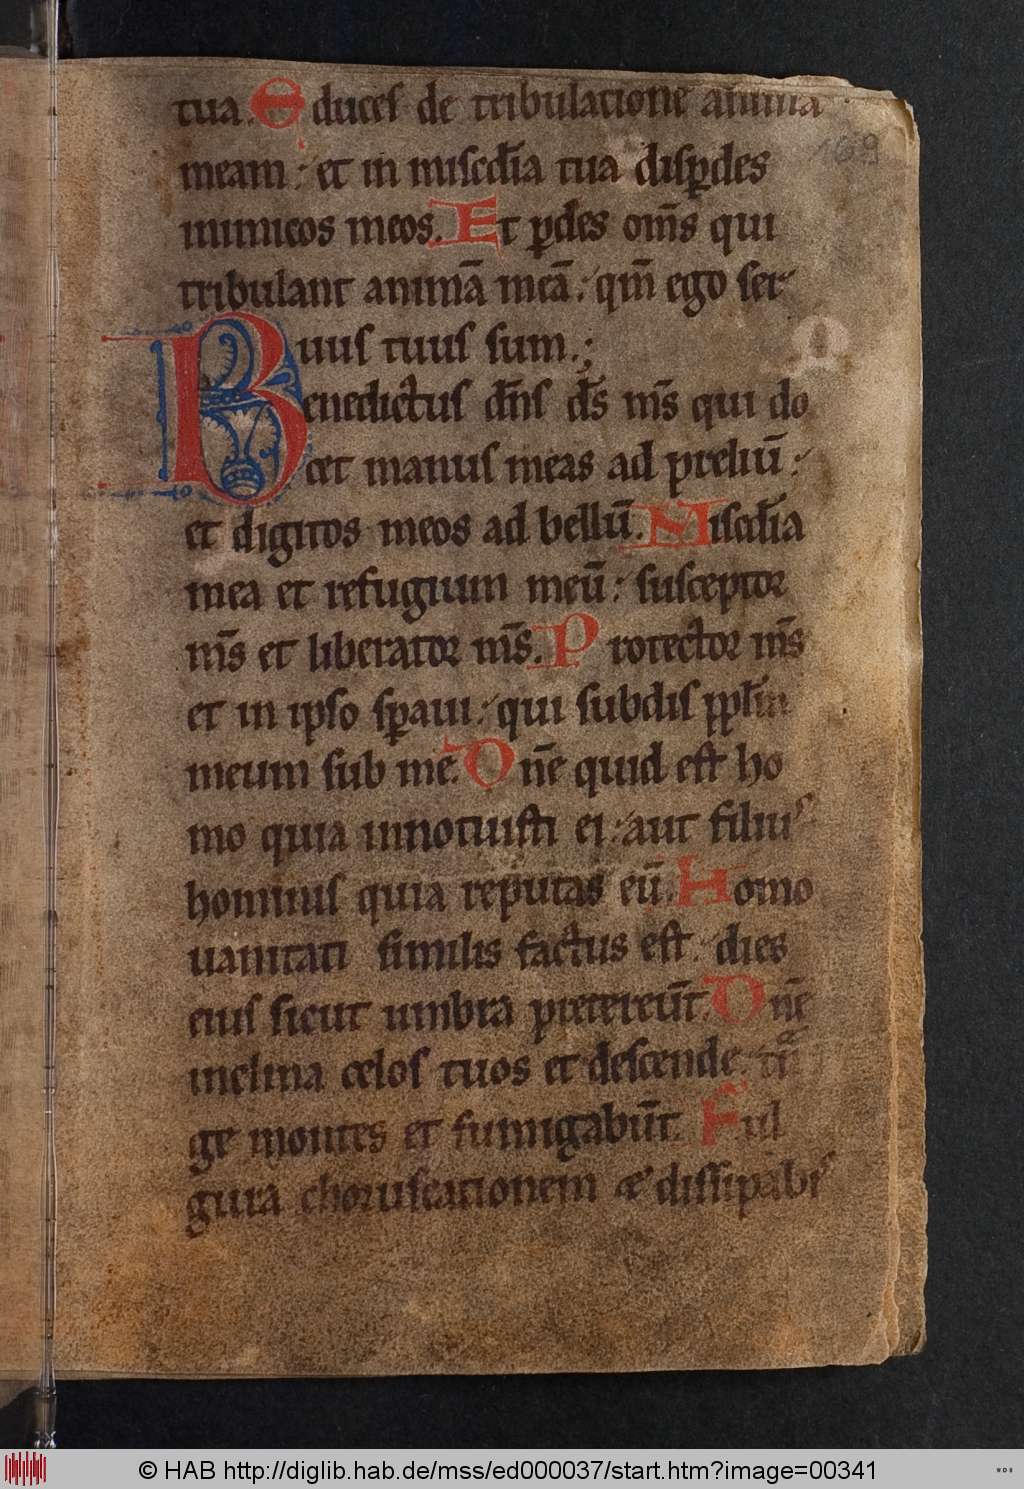 tua. Educes de tribulatione anima
169
meam: et in misc̄dia tua disꝑdes
inimicos meos. Et ꝑdes om̄s qui
tribulant animā meā: qm̄ ego ser
uus tuus sum.;
Benedictus dn̄s ds̄ ms̄ qui do
cet manus meas ad preliū:
et digitos meos ad bellū. Misc̄dia
mea et refugium meū: susceptor
ms̄ et liberator ms̄. Protector ms̄
et in ipso sꝑaui: qui subdis pplm̄
meum sub me. Dn̄e quid est ho
mo quia innotuisti ei: aut filius
hominis quia reputas eū. Homo
uanitati similis factus est: dies
eius sicut umbra pretereūt. Dn̄e
inclina celos tuos et descende: tā
ge montes et fumigabūt. Ful
gura choruscationem et dissipabis
© HAB http://diglib.hab.de/mss/ed000037/start.htm?image=00341